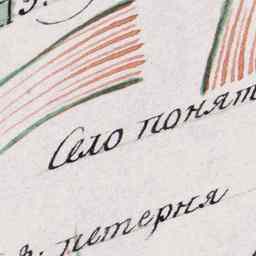 Село понят
петерня